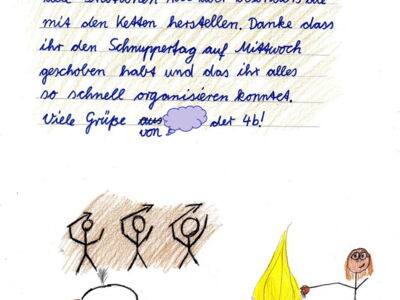 mit den Ketten herstellen. Danke dass
ihr den Schnuppertag auf Mittwoch
geschoben habt und das ihr alles
so schnell organisieren konntet.
Viele Grüße aus der 4b!
von